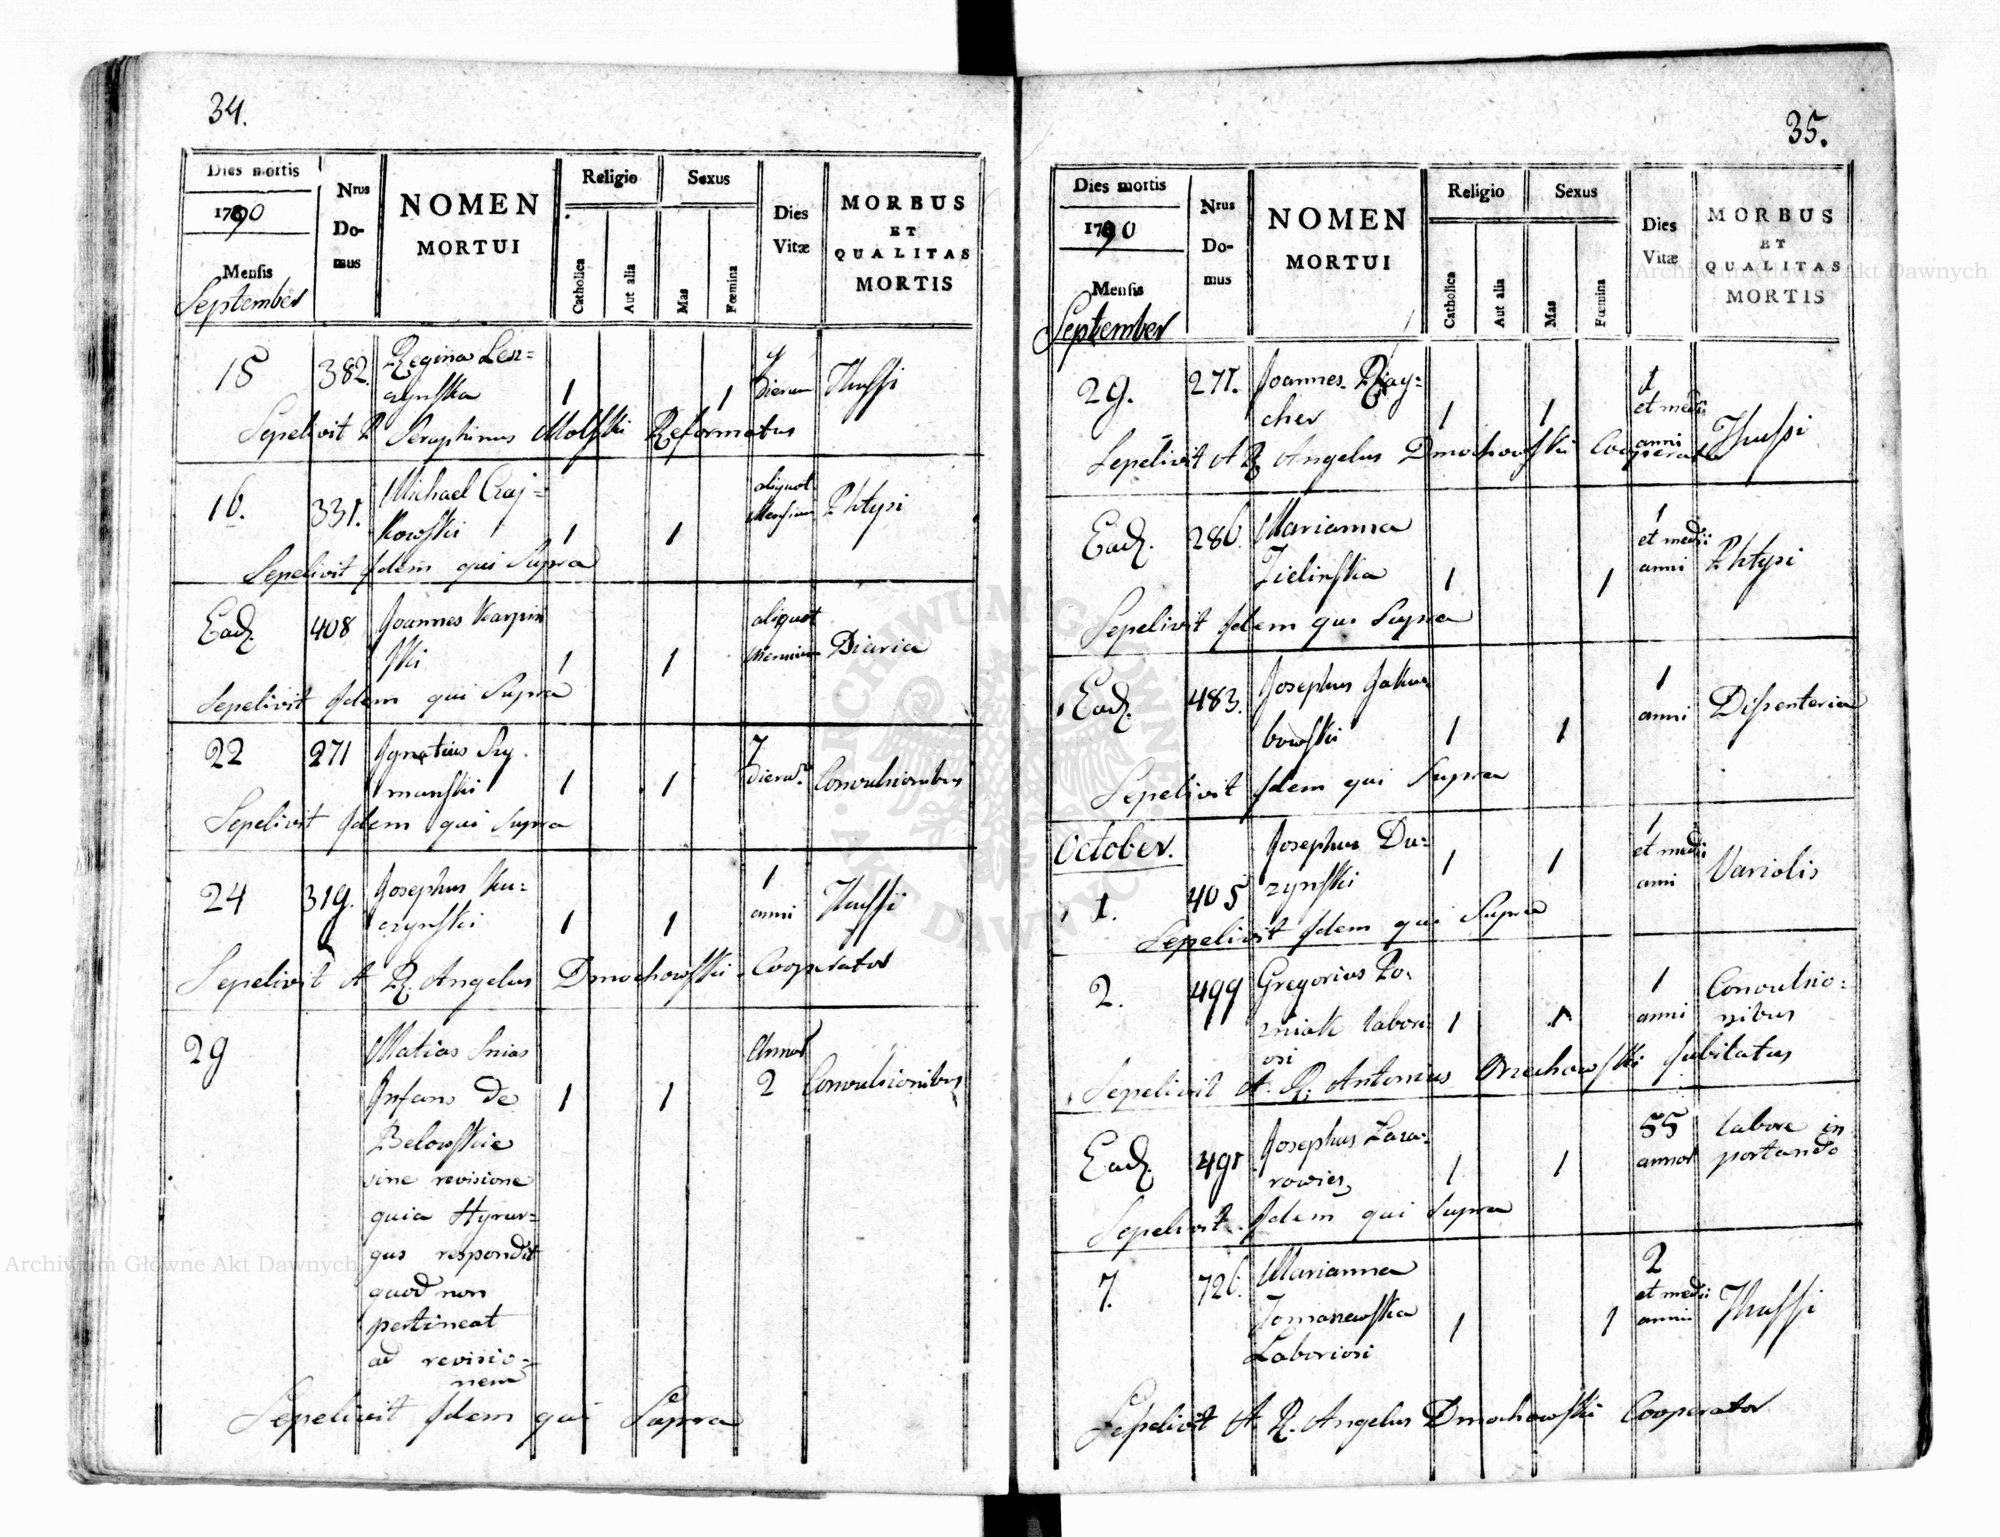 34.
Dies mortis
1790
Mensis
September
Nrus
Do-
mus
NOMEN
MORTUI
Religio
Catholica
Aut alia
Sexus
Mas
Fœmina
Dies
Vitæ
MORBUS
ET
QUALITAS
MORTIS
15 382. Regina Len=
czynska 1 1 9 dierum Thussi
Sepelivit P Seraphinus Molski Reformatus
16. 331. Michael Czaj=
kowski 1 1 aliquot Mensium Phtysi
Sepelivit Idem qui Supra
Ead. 408 Joannes Karpin
ski 1 1 aliquot Mensium Diaria
Sepelivit Idem qui Supra
22 271 Ignatius Szy.
manski 1 1 7 dierum Convulsionibus
Sepelivit Idem qui Supra
24 319. Josephus Ku=
czynski 1 1 1 anni Thussi
Sepelivit A R. Angelus Dmochowski Cooperator
29 Matias Snias
Infans de 1 1 Annor 2 Convulsionibus
Belowskie
sine revisione
quia Hyrur=
gus respondit
quod non
pertineat
ad revisio=
nem
Sepelivit Idem qui Supra
35.
Dies mortis
1790
Mensis
September
Nrus
Do-
mus
NOMEN
MORTUI
Religio
Catholica
Aut alia
Sexus
Mas
Fœmina
Dies
Vitæ
MORBUS
ET
QUALITAS
MORTIS
29. 271. Joannes
cher 1 1 1 et medii anni Thussi
Sepelivit A R Angelus Dmochowski Cooperator
Ead. 286. Marianna
Zielinska 1 1 1 et medii anni Phtysi
Sepelivit Idem qui Supra
Ead. 483. Josephus Jaku
bowski 1 1 1 anni Dissenteria
Sepelivit Idem qui Supra
October.
1. 405 Josephus Du=
zynski 1 1 1 et medii anni Variolis
Sepelivit Idem qui Supra
2. 499 Gregorius Po=
zniak labori 1 1 1 anni Convulsio=
osi nibus
Sepelivit A. R. Antonius Orzechowski Jubilatus
Ead. 491 Josephus Laza=
rowicz 1 1 55 annor labore in
portando
Sepelivit Idem qui Supra
7. 726. Marianna
Tomaszewska 1 1 2 et medii anni Thussi
Laboriosi
Sepelivit A. R. Angelus Dmochowski Cooperator
Archiwum Główne Akt Dawnych
Archiwum Główne Akt Dawnych
ARCHIWUM GŁÓWNE AKT DAWNYCH